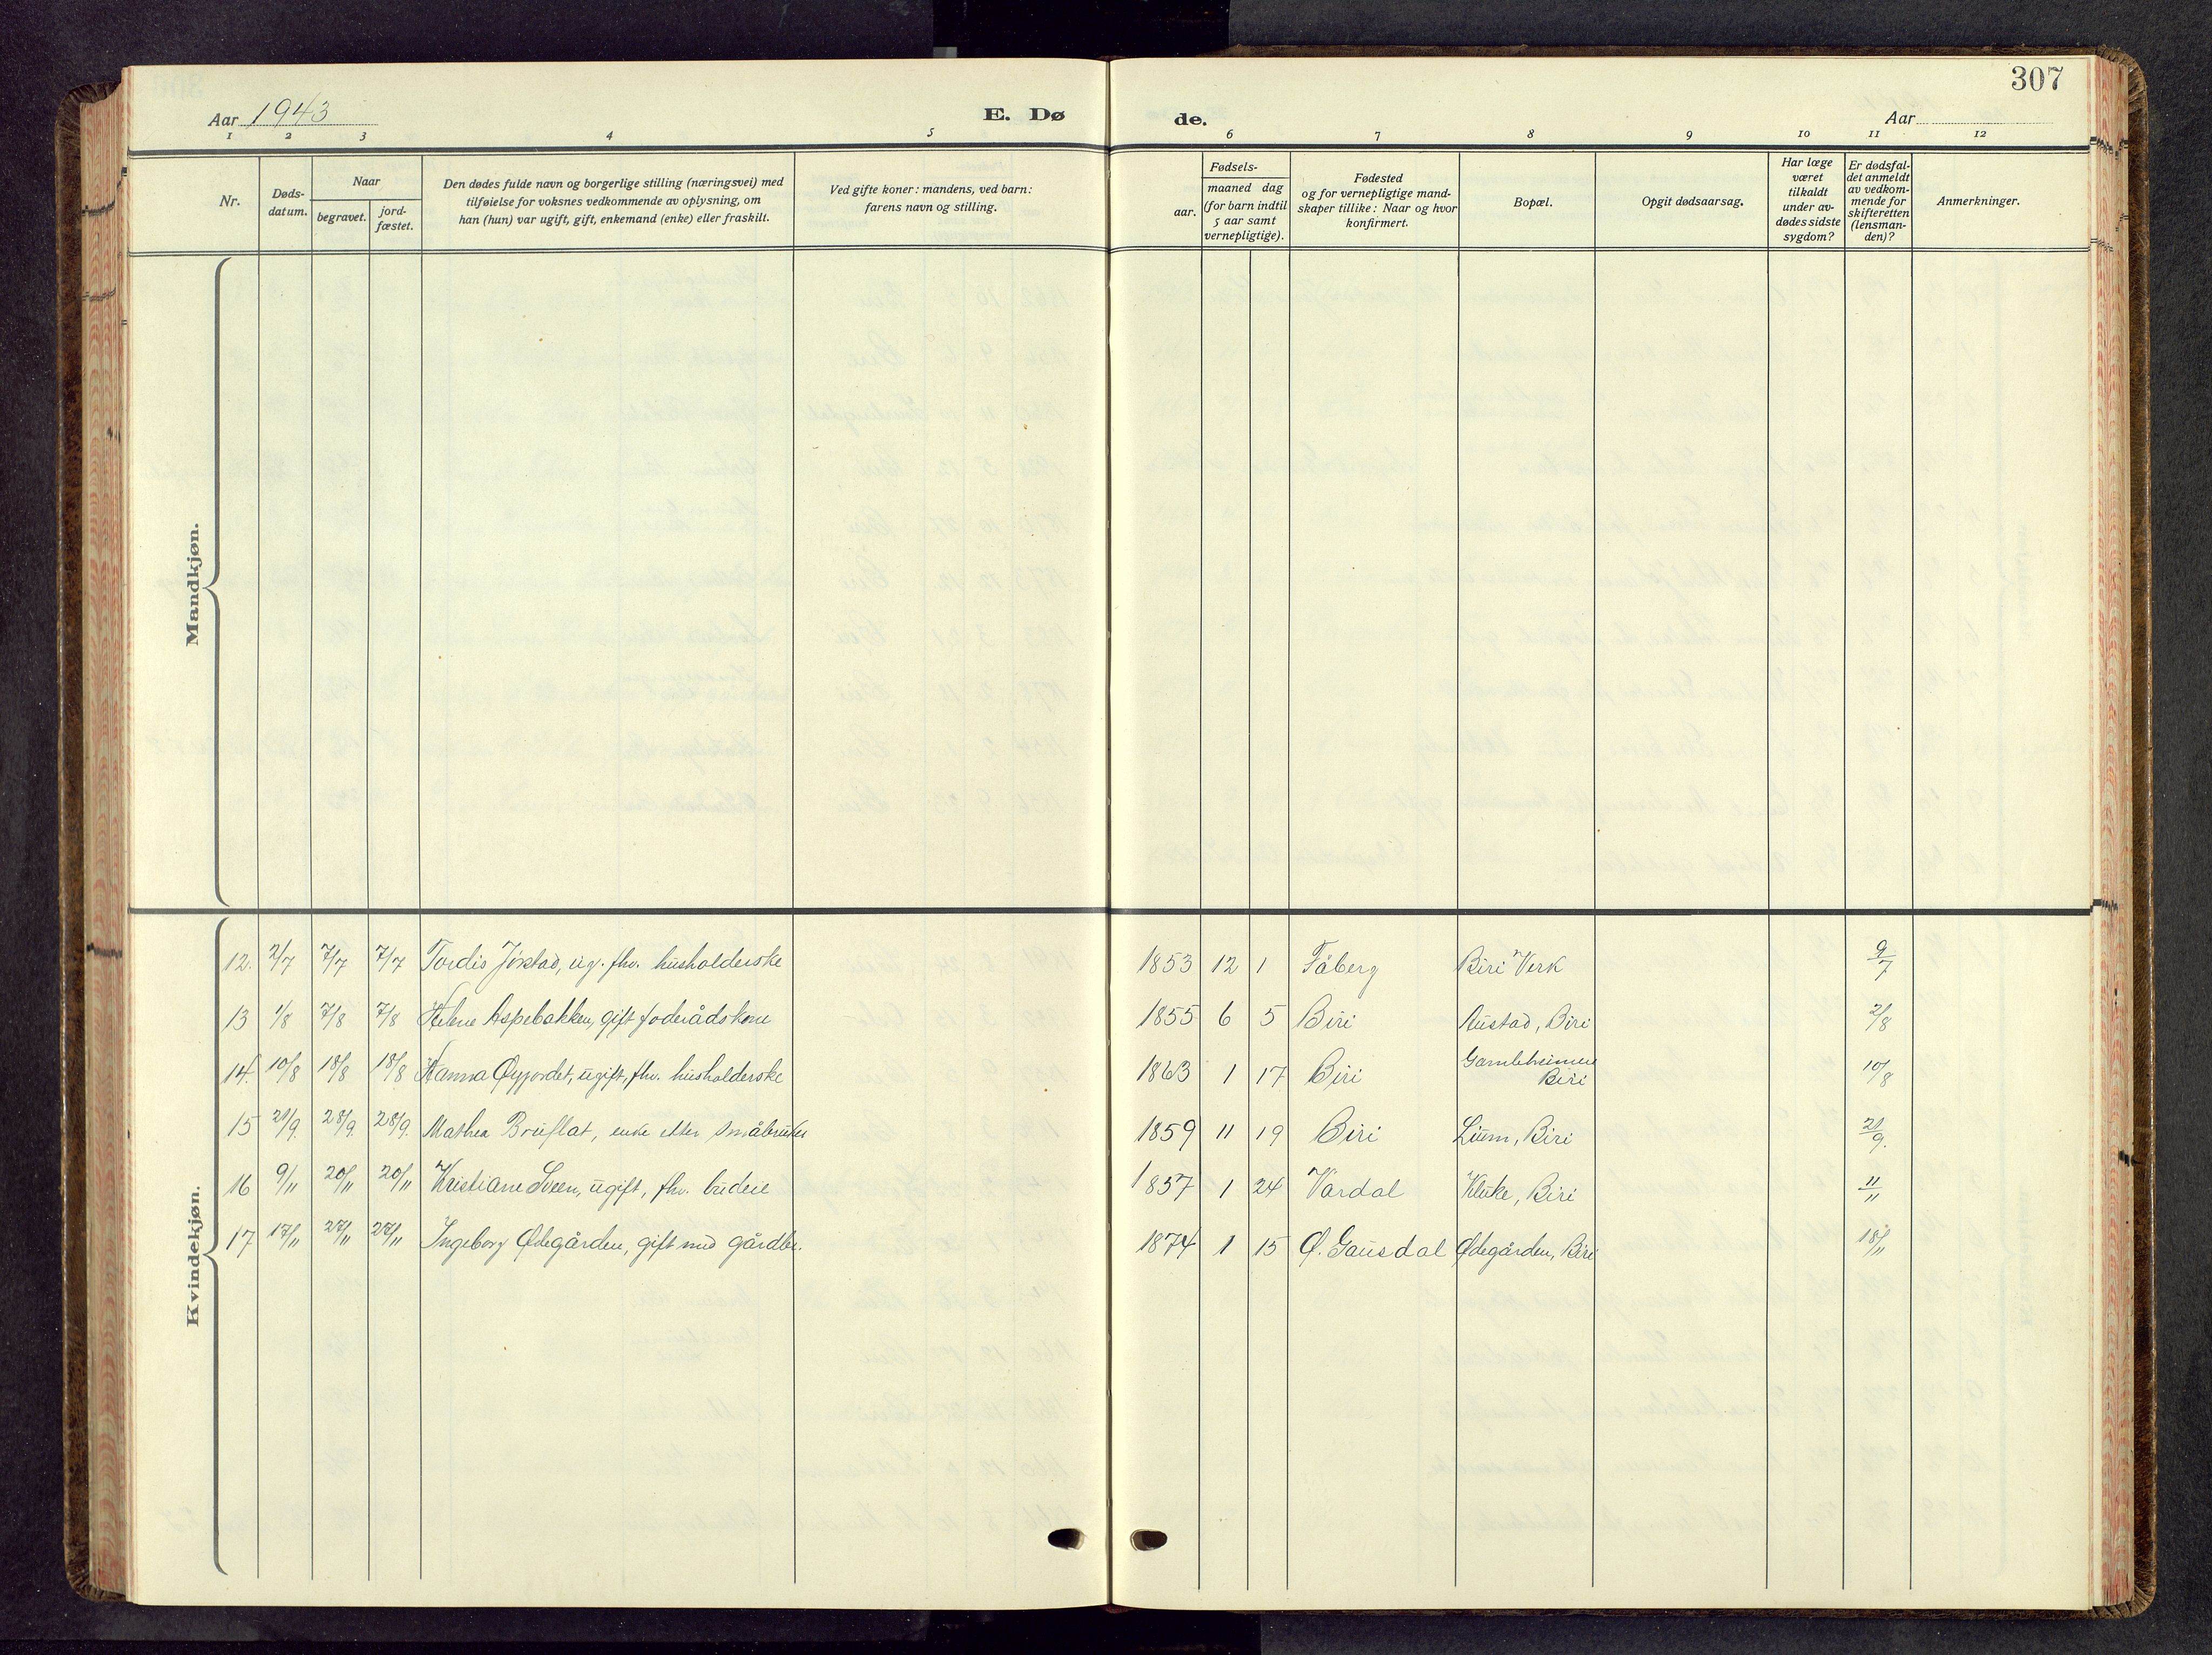 307
Aar 1943
E. Dø
de.
Aar
1 2 3 4 5 6 7 8 9 10 11 12
Nr.
Døds-
datum.
Naar
begravet.
jord-
fæstet.
Den dødes fulde navn og borgerlige stilling (næringsvei) med
tilføielse for voksnes vedkommende av oplysning, om
han (hun) var ugift, gift, enkemand (enke) eller fraskilt.
Ved gifte koner: mandens, ved barn:
farens navn og stilling.
Fødsels-
aar.
maaned dag
(for barn indtil
5 aar samt
vernepligtige).
Fødested
og for vernepligtige mand-
skaper tillike: Naar og hvor
konfirmert.
Bopæl.
Opgit dødsaarsag.
Har læge
været
tilkaldt
under av-
dødes sidste
sygdom?
Er dødsfal-
det anmeldt
av vedkom-
mende for
skifteretten
(lensman-
den)?
Anmerkninger.
Mandkjøn.
Kvindekjøn.
12. 2/7 7/7 7/7 Tordis Jørstad, ug. fhv. husholderske 1853 12 1 Fåberg Biri Verk 9/7
13 1/8 7/8 7/8 Helene Aspebakken, gift foderådskone 1855 6 5 Biri Austad, Biri 2/8
14. 10/8 18/8 18/8 Hanna Øyjordet, ugift, fhv. husholderske 1863 1 17 Biri Gamleheimen Biri 10/8
15 21/9 28/9. 28/9. Mathea Bruflat, enke etter småbruker 1859 11 19 Biri Lium, Biri 21/9.
16 9/11 20/11 20/11 Kristiane Sveen, ugift, fhv. budeie 1857 1 24 Vardal Kluke, Biri 11/11
17 17/11 27/11 27/11 Ingeborg Ødegården, gift med gårdbr. 1874 1 15 Ø. Gausdal Ødegården, Biri 18/11